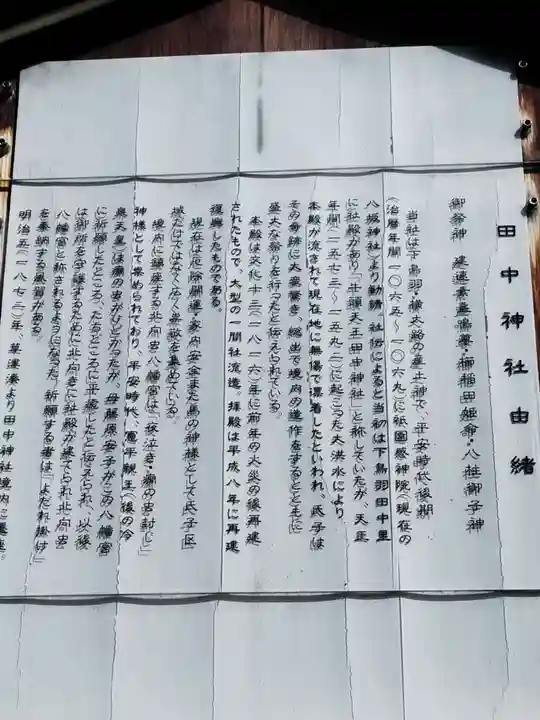 田中神社由緒
御祭神 建速素盞嗚尊・櫛稲田姫命・八柱御子神
当社は下鳥羽・横大路の産土神で、平安時代後期
(治暦年間一〇六五〜一〇六九)に祇園感神院(現在の
八坂神社)より勧請、社伝によると当初は下鳥羽田中里
に社殿があり「牛頭天王田中神社」と称していたが、天正
年間(一五七三〜一五九二)に起こった大洪水により
本殿が流されて現在地に無傷で漂着したといわれ、氏子は
その奇跡に大変驚き、総出で境内の造作をするとともに
盛大な祭りを行ったと伝えられている。
本殿は文化十三(一八一六)年に前年の火災の後再建
されたもので、大型の一間社流造。拝殿は平成八年に再建
復興したものである。
現在は厄除開運・家内安全また馬の神様として氏子区
域だけではなく広く崇敬を集めている。
境内に鎮座する北向き八幡宮は「夜泣き・癇の虫封じ」
神様として崇められており、平安時代、寛平親王(後の冷
泉天皇)は癇の虫がひどかったが、母藤原安子がこの八幡宮
に祈願したところ、たちどころに平癒したと伝えられ、以後
は御所を守護するために北向きに社殿が建てられ北向き
八幡宮と称されるようになった。祈願する者は「よだれ掛け」
を奉納する風習がある。
明治五(一八七二)年、草運湊より田中神社境内に遷座。